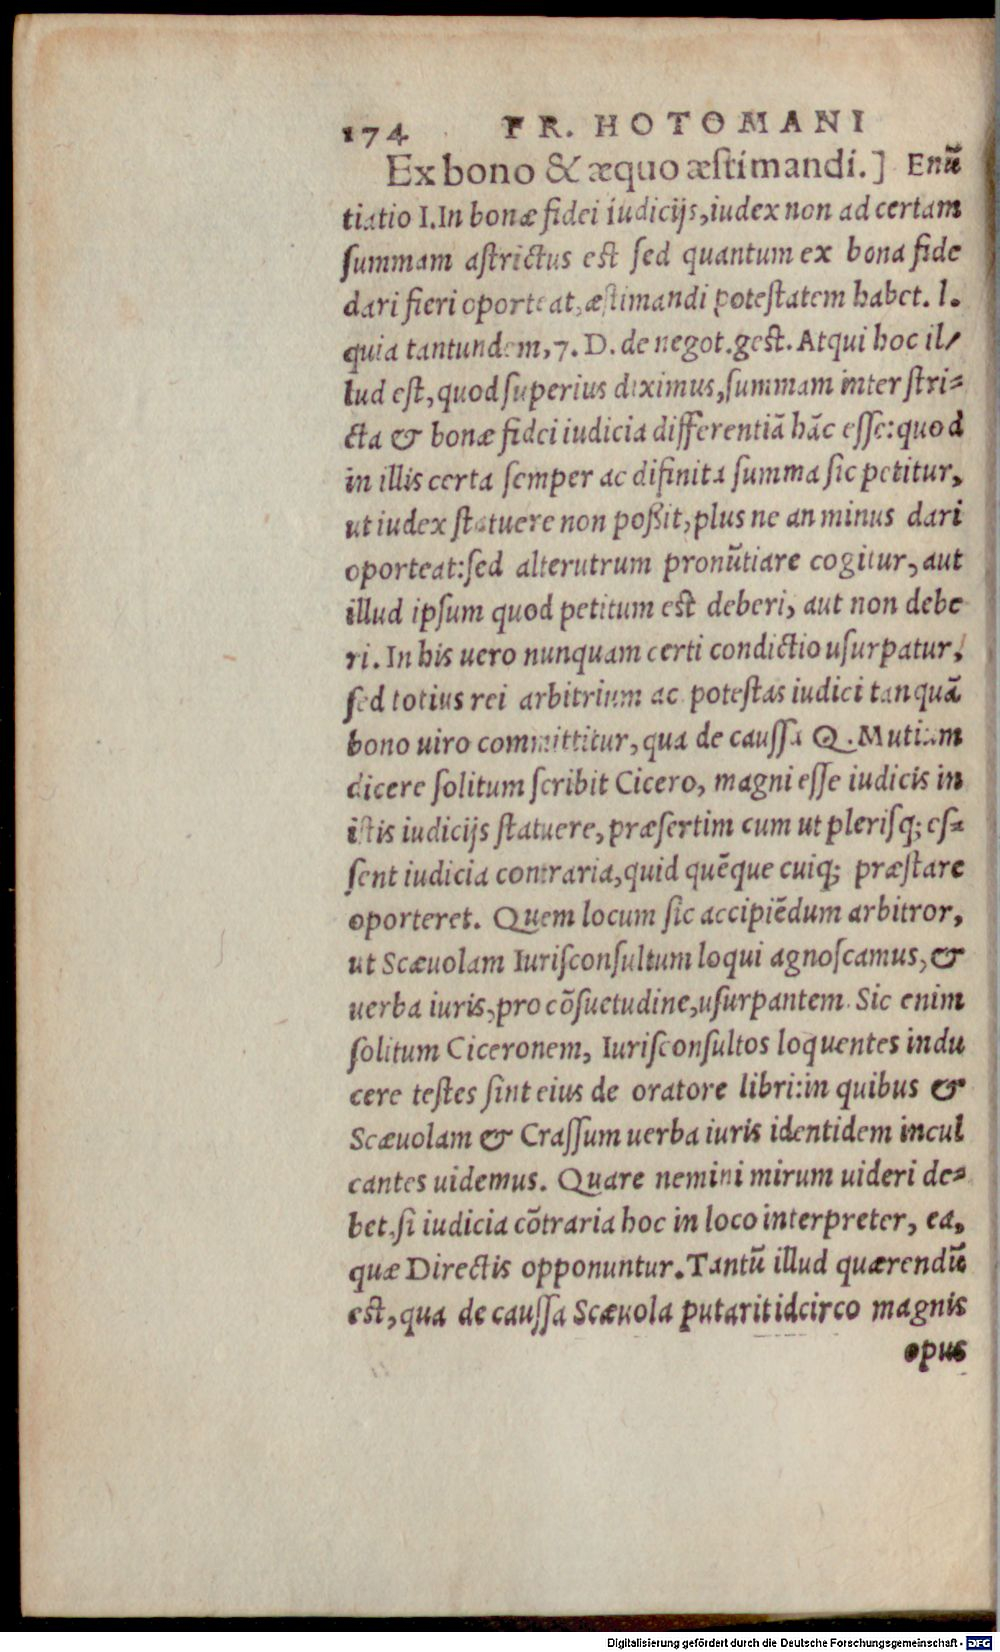 174 FR. HOTOMANI
Ex bono & æquo æstimandi.] Enū
tiatio I. In bonæ fidei iudicijs, iudex non ad certam
summam astrictus est sed quantum ex bona fide
dari fieri oporteat, æstimandi potestatem habet. l.
quia tantundem, 7. D. de negot. gest. Atqui hoc il/
lud est, quod superius diximus, summam inter stri-
cta & bonæ fidei iudicia differentiā hāc esse: quod
in illis certa semper ac difinita summa sic petitur,
ut iudex statuere non poßit, plus ne an minus dari
oporteat: sed alterutrum pronūtiare cogitur, aut
illud ipsum quod petitum est deberi, aut non debe
ri. In his uero nunquam certi condictio usurpatur,
sed totius rei arbitrium ac potestas iudici tanquā
bono uiro committitur, qua de caussa Q. Mutium
dicere solitum scribit Cicero, magni esse iudicis in
istis iudicijs statuere, præsertim cum ut plerisq; es-
sent iudicia contraria, quid quēque cuiq; præstare
oporteret. Quem locum sic accipiēdum arbitror,
ut Scæuolam Iurisconsultum loqui agnoscamus, &
uerba iuris, pro cōsuetudine, usurpantem. Sic enim
solitum Ciceronem, Iurisconsultos loquentes indu
cere testes sint eius de oratore libri: in quibus &
Scæuolam & Crassum uerba iuris identidem incul
cantes uidemus. Quare nemini mirum uideri de-
bet, si iudicia cōtraria hoc in loco interpreter, ea,
quæ Directis opponuntur. Tantū illud quærendū
est, qua de caussa Scæuola putarit idcirco magnis
opus
Digitalisierung gefördert durch die Deutsche Forschungsgemeinschaft - DFG